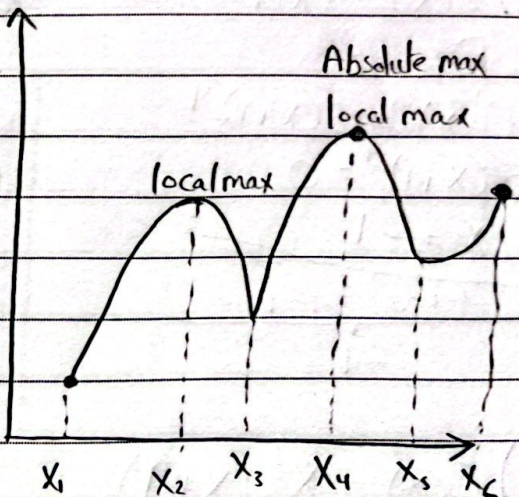 Absolute max
local max
local max
X₁ X₂ X₃ X₄ X₅ X₆